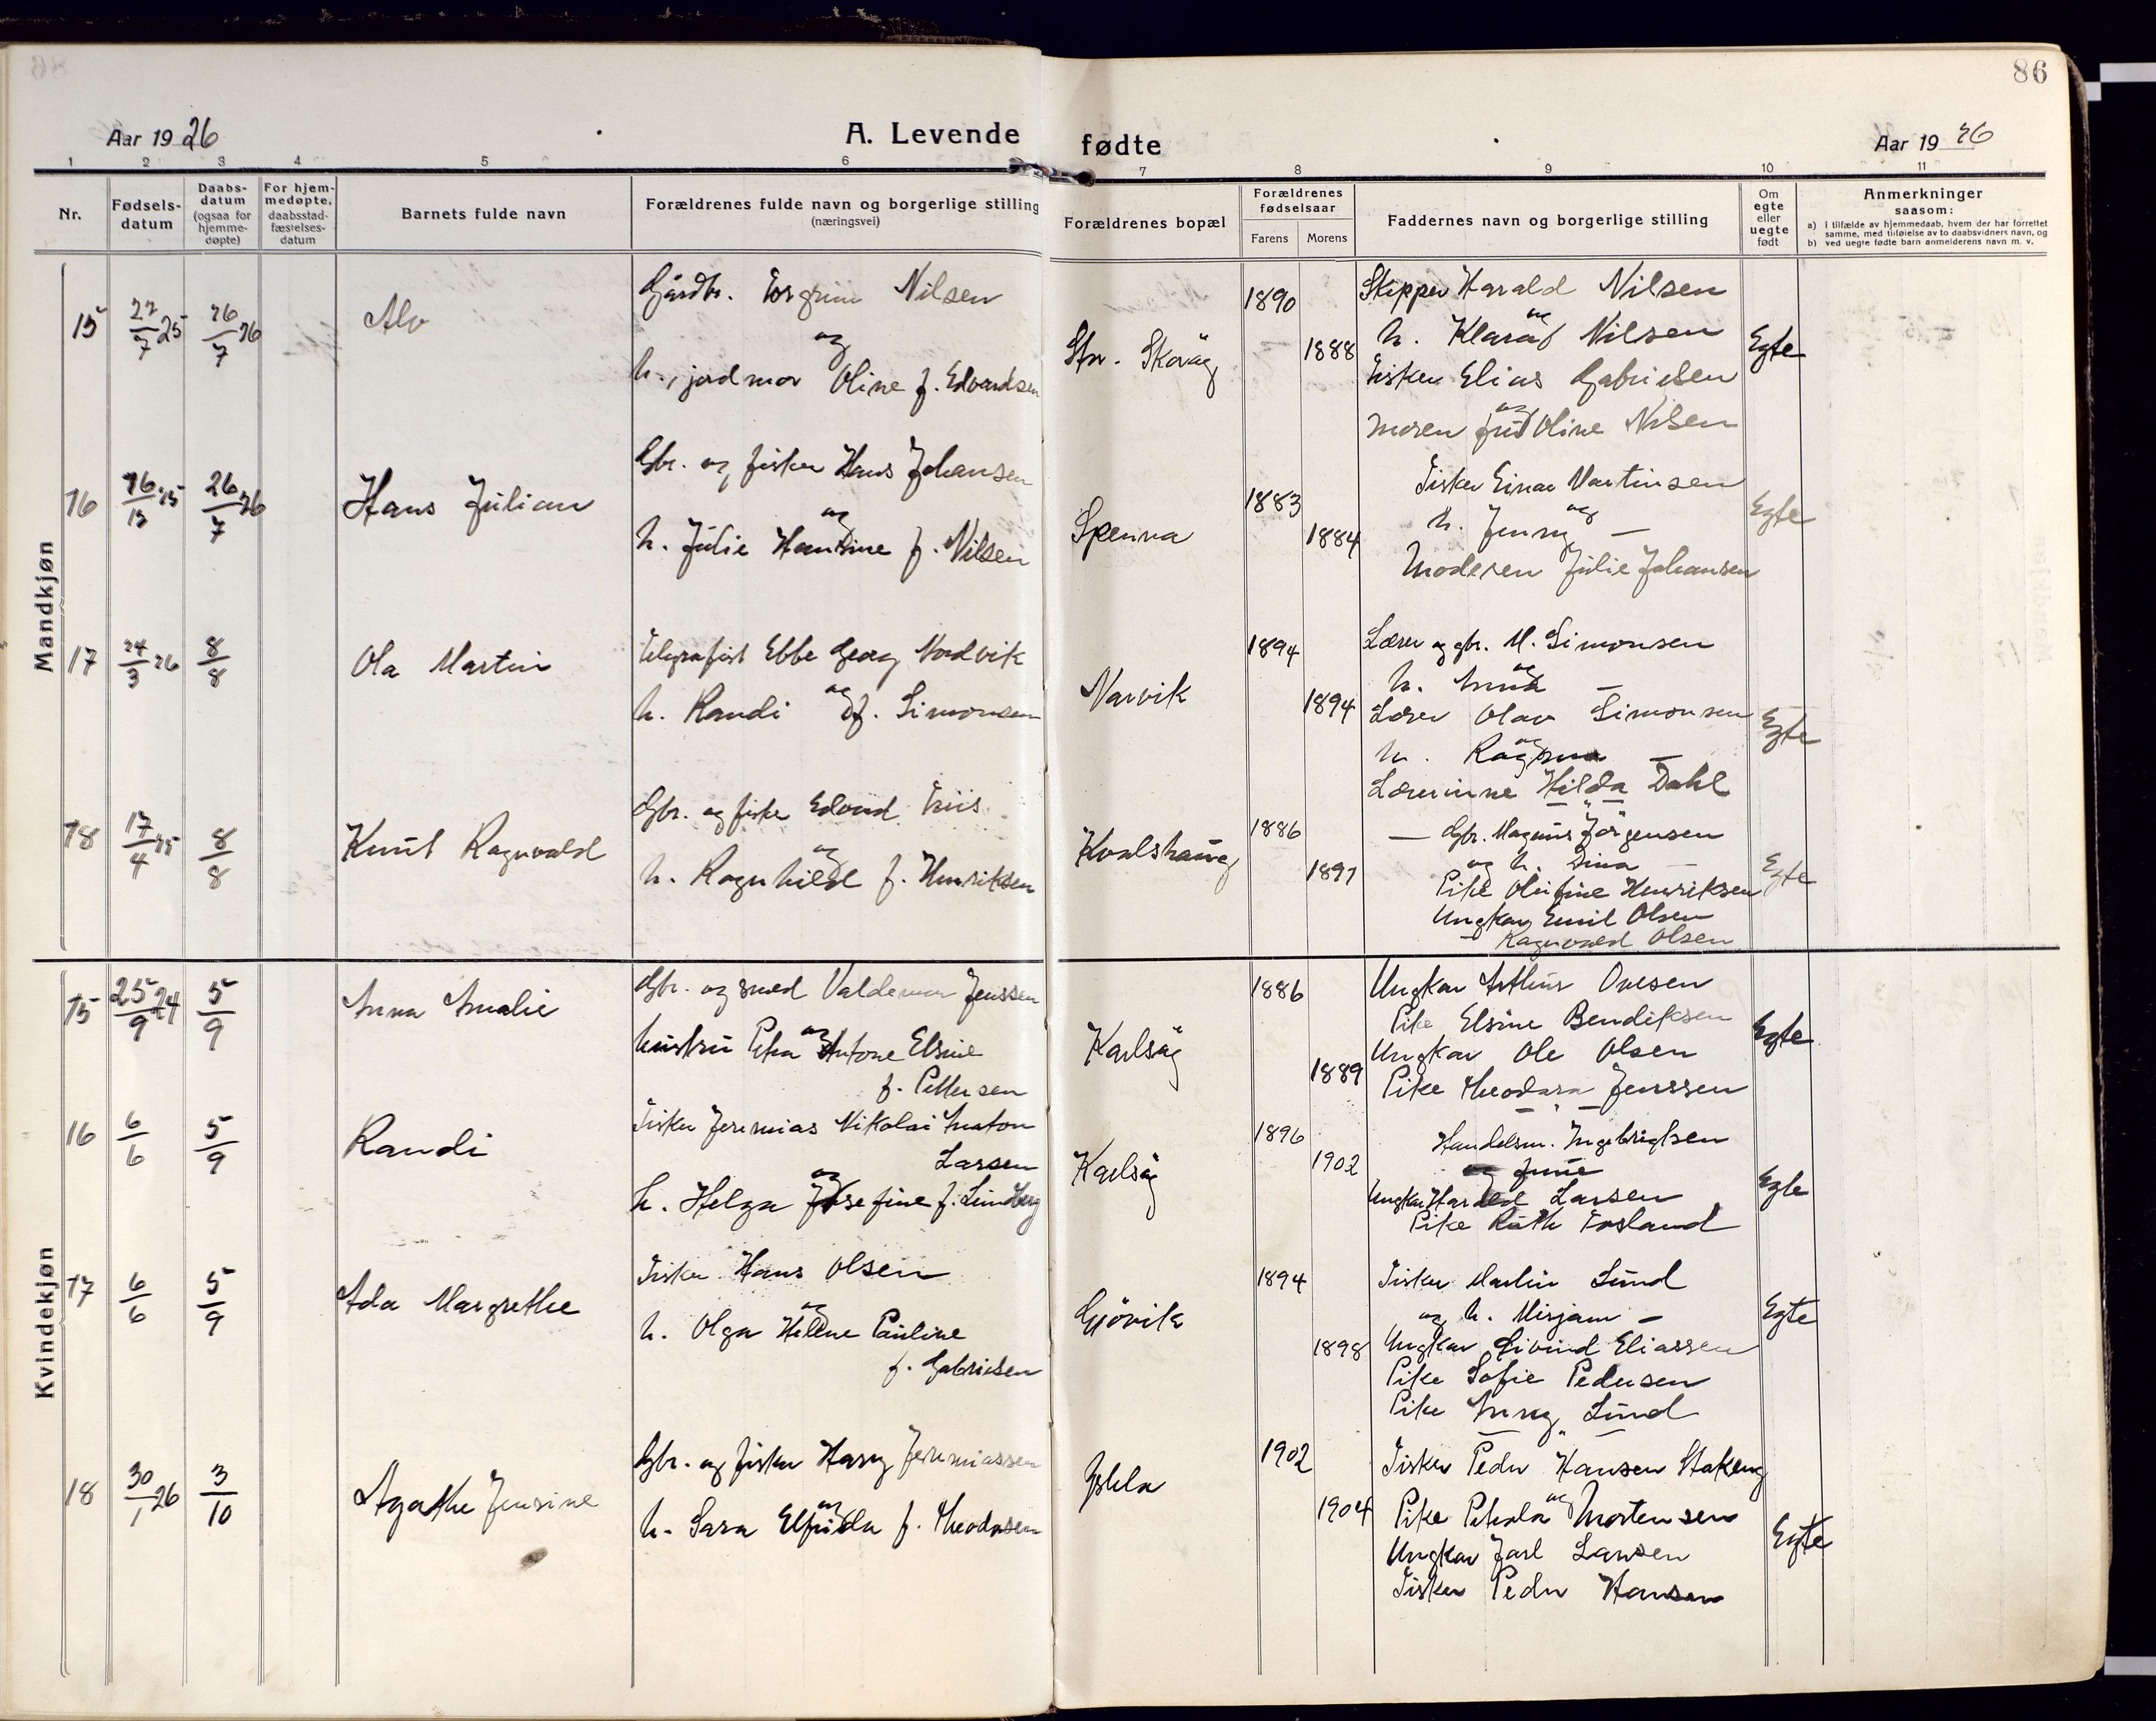 86
Aar 1926
A. Levende fødte
Aar 1926
1 2 3 4 5 6 7 8 9 10 11
Nr.
Fødselsdatum
Daabsdatum (ogsaa for hjemmedøpte)
For hjemmedøpte, daabsstadfæstelsesdatum
Barnets fulde navn
Forældrenes fulde navn og borgerlige stilling (næringsvei)
Forældrenes bopæl
Forældrenes fødselsaar
Farens Morens
Faddernes navn og borgerlige stilling
Om egte eller uegte født
Anmerkninger
saasom:
a) I tilfælde av hjemmedaab, hvem der har forrettet
samme, med tilføielse av to daabsvidners navn, og
b) ved uegte fødte barn anmelderens navn m. v.
Mandkjøn
15 22/7 25 26/7 26 Alv
Gårdbr. Torgrim Nilsen
og
h., jordmor Oline f. Edvardsen
Str. Skorøg
1890 1888
Skipper Harald Nilsen
og
h. Klara Nilsen
Fisker Elias Gabrielsen
og
Moren fru Oline Nilsen
Egte
16 26/7 26 Hans Julian
Gbr. og fisker Hans Johansen
og
h. Julie Hansine f. Nilsen
Spenna
1883 1884
Fisker Einar Martinsen
og
h. Jenny —
Moderen Julie Johansen
Egte
17 24/3 26 8/8 Ola Martin
Telegrafist Ebbe Georg Nordvik
og
h. Randi f. Simonsen
Narvik
1894 1894
Lærer og gbr. M. Simonsen
og
h. Anna —
Lærer Olav Simonsen
og
h. Ragna —
Lærerinne Hilda Dahl
Egte
18 17/4 25 8/8 Knut Ragnvald
Gbr. og fisker Edvard Friis
og
h. Ragnhild f. Henriksen
Kvalshaug
1886 1891
Gbr. Magnus Jørgensen
og h. Dina —
Pike Olufine Henriksen
Ungkar Emil Olsen
Ragnvald Olsen
Egte
Kvindekjøn
15 25/9 24 5/9 Anna Amalie
Gbr. og smed Valdemar Jenssen
og
hustru Petra Antone Elsine
f. Pettersen
Karlsøy
1886 1889
Ungkar Arthur Ovesen
Pike Elsine Bendiksen
Ungkar Ole Olsen
Pike Theodora Jenssen
Egte
16 6/6 5/9 Randi
Fisker Jeremias Nikolai Anton
Larsen
og
h. Helga Josefine f. Lundberg
Karlsøy
1896 1902
Handelsm. Ingebrigtsen
og frue
Ungkar Harald Larsen
Pike Ruth Torsland
Egte
17 6/6 5/9 Ada Margrethe
Fisker Hans Olsen
og
h. Olga Helene Pauline
f. Gabrielsen
Gjövik
1894 1898
Fisker Martin Lund
og h. Mirjam —
Ungkar Eivind Eliassen
Pike Sofie Pedersen
Pike Anny Lund
Egte
18 30/1 26 3/10 Agathe Jensine
Gbr. og fisker Harry Jeremiassen
og
h. Sara Elfrida f. Theodorsen
1902 1904
Fisker Peder Hansen Stakeng
og
Pike Petrola Mortensen
Ungkar Jarl Larsen
Fisker Peder Hansen
Egte